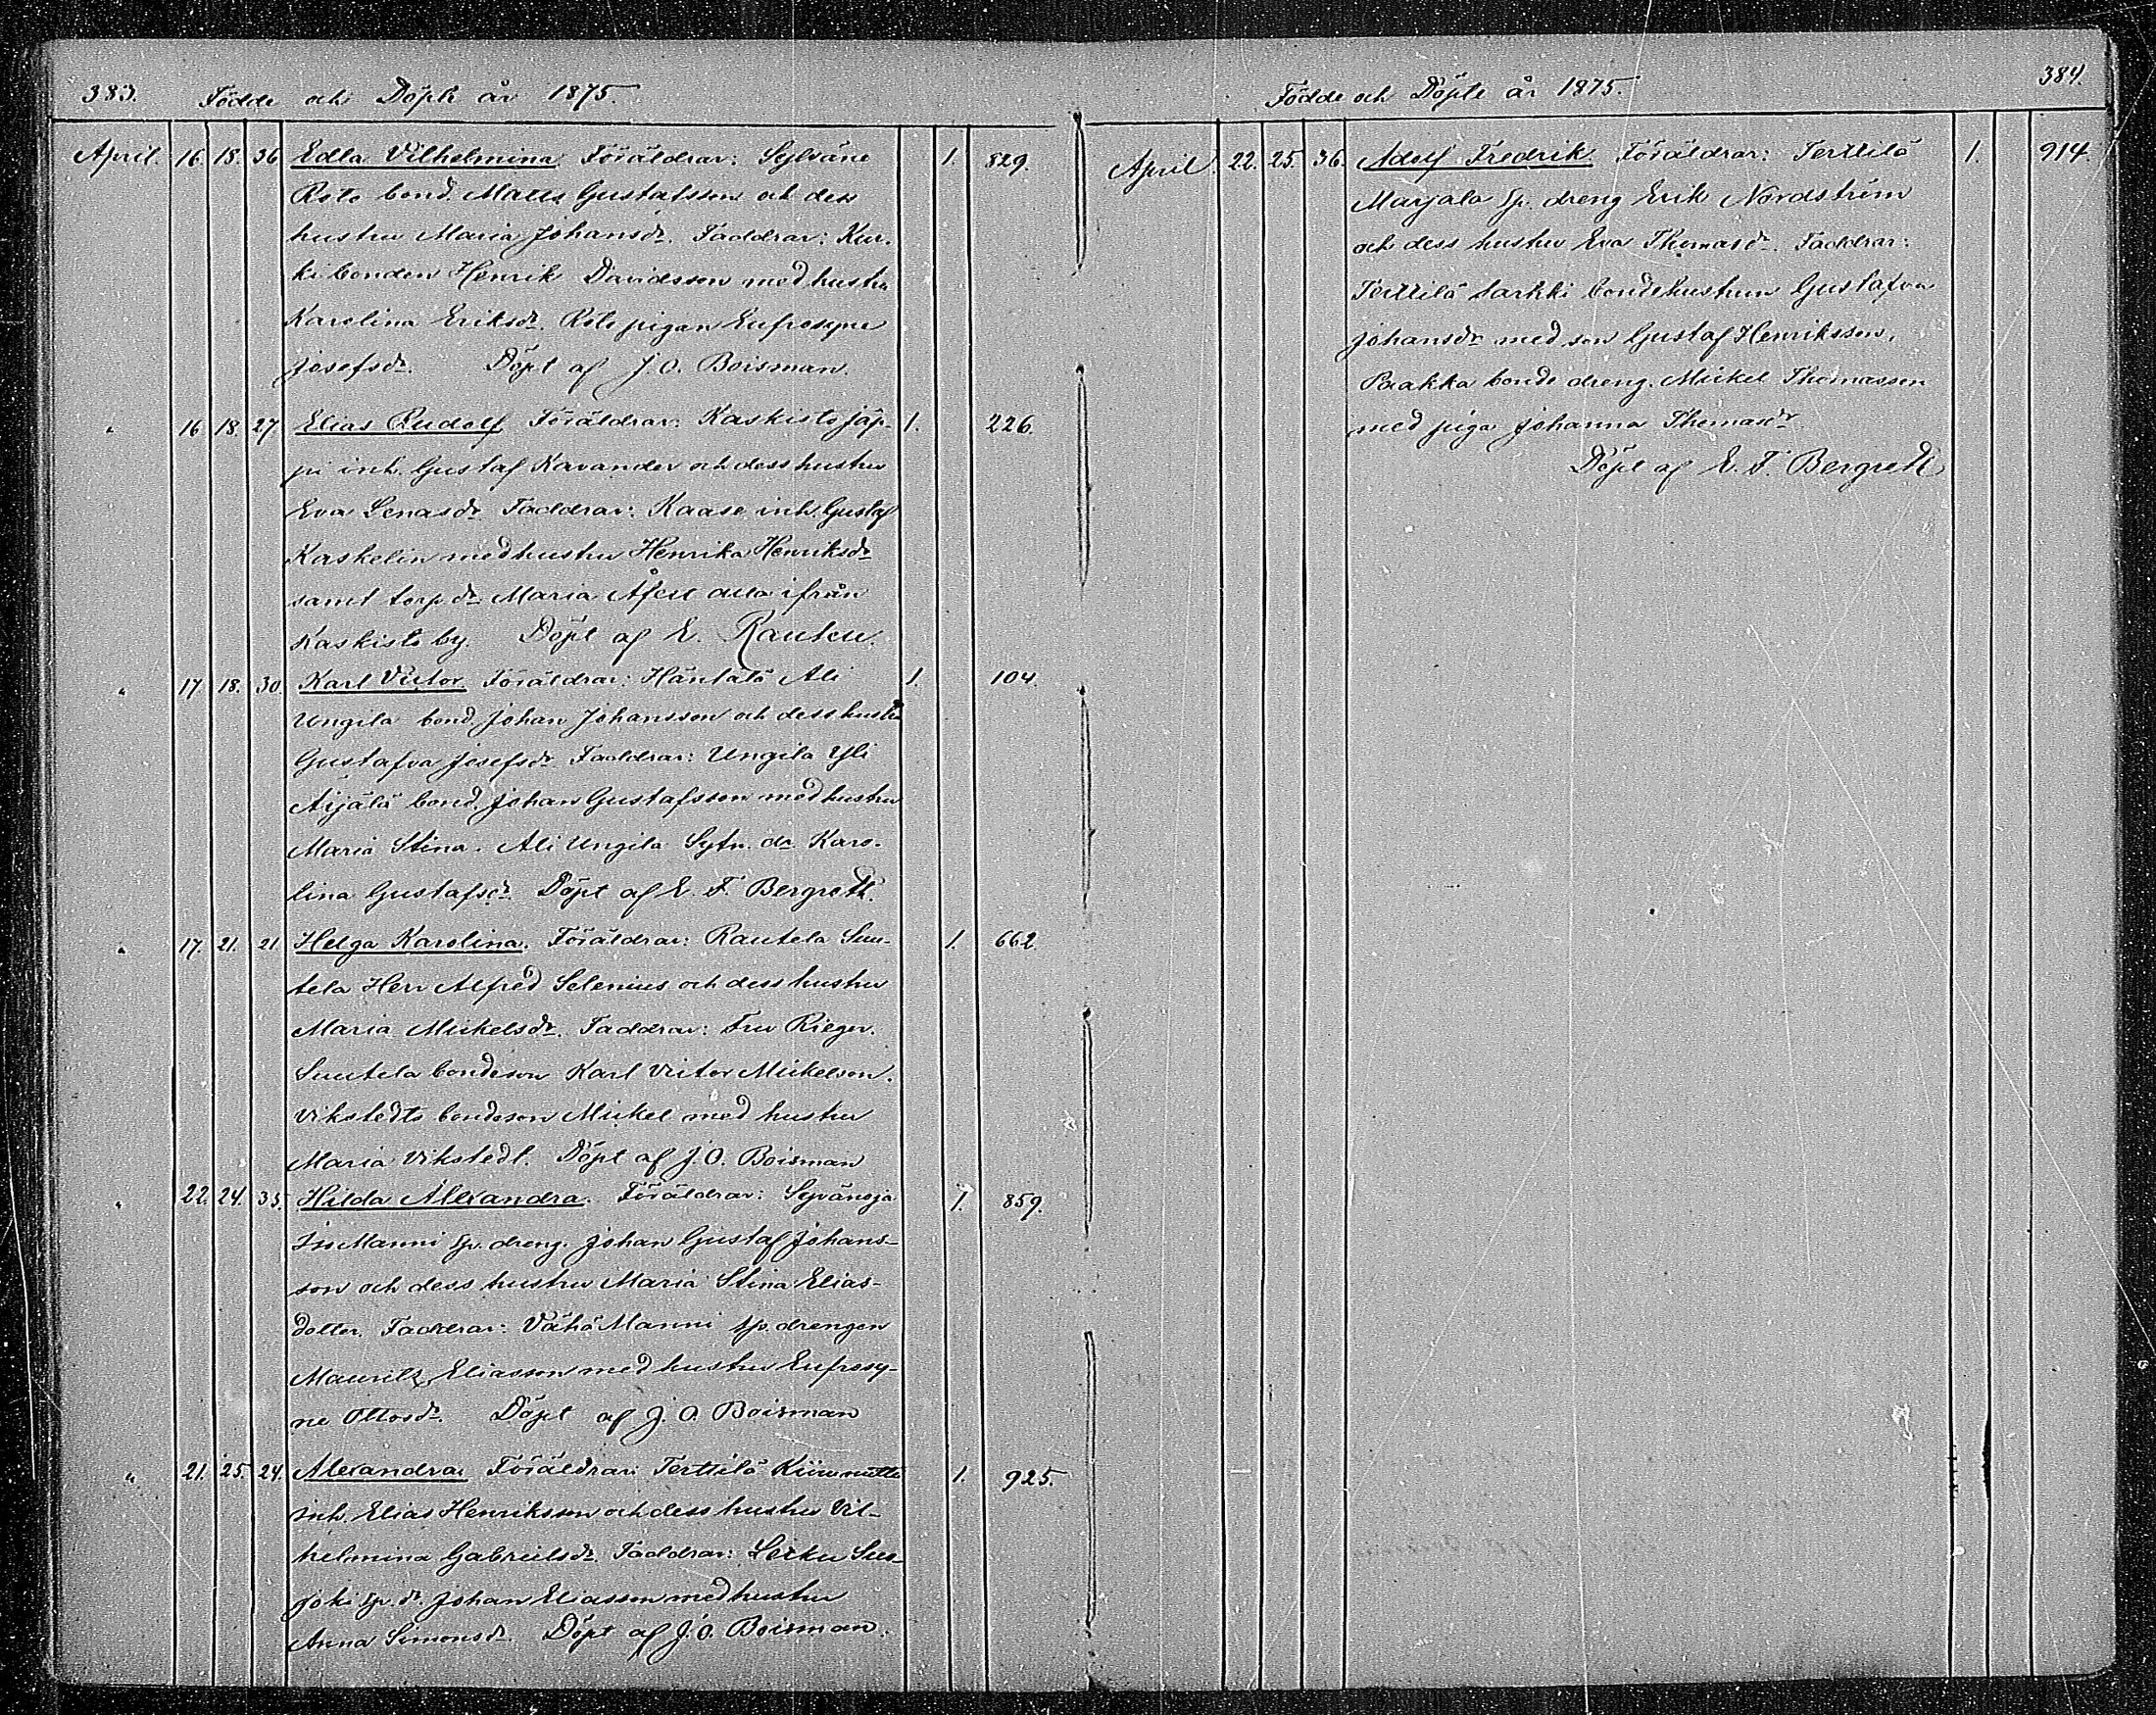 383. Födde och Döpte år 1875.
April. 16. 18. 36 Edla Vilhelmina Föräldrar: Sylväne 1. 829.
Roto bond. Matts Gustafsson och dess
hustru Maria Johansdr. Faddrar: Kur-
ki bonden Henrik Davidsson med hustru
Karolina Eriksdr. Roto pigan Eufrosyne
Josefsdr. Döpt af J. O. Boisman.
" 16 18. 27 Elias Rudolf Föräldrar: Kaskisto Jäp- 1. 226.
pi inh. Gustaf Kavander och dess hustru
Eva Lenasdr. Faddrar: Kaase inh. Gustaf
Kaskelin med hustru Henrika Henriksdr
samt torp. dr Maria alla ifrån
Kaskisto by. Döpt af E. Rautell.
" 17 18. 30. Karl Victor Föräldrar: Häntälä Ali 1. 104.
Ungila bond. Johan Johansson och dess hustru
Gustafva Josefsdr Faddrar: Ungila Yli
Äijälä bond. Johan Gustafsson med hustru
Maria Stina. Ali Ungila Sytn. dr Karo-
lina Gustafsdr. Döpt af E. F. Bergroth.
" 17. 21. 21. Helga Karolina. Föräldrar: Rautela Suu- 1. 662.
tela Herr Alfred Selenius och dess hustru
Maria Mickelsdr. Faddrar: Fru Rieger.
Suutela bondeson Karl Victor Mickelson.
Vikstedts bondeson Mickel med hustru
Maria Vikstedt. Döpt af J. O. Boisman
" 22. 24. 35. Hilda Alexandra. Föräldrar: Syvänoja 1. 859.
Iso Manni sp. dreng. Johan Gustaf Johans-
son och dess hustru Maria Stina Elias-
dotter. Faddrar: Vähä Manni sp. drengen
Mauritz Eliasson med hustru Eufrosy-
ne Ottosdr. Döpt af J. O. Boisman
" 21. 25. 24. Alexandra Föräldrar: Terttilä 1. 925.
inh. Elias Henriksson och dess hustru Vil-
helmina Gabrielsdr. Faddrar: Leiku Suo-
joki sp. dr. Johan Eliasson med hustru
Anna Simonsdr. Döpt af J. O. Boisman.
Födde och Döpte år 1875. 384.
April. 22. 25. 36. Adolf Fredrik. Föräldrar: Terttilä 1. 914.
Marjala sp. dreng Erik Nordström
och dess hustru Eva Thomasdr. Faddrar:
Terttilä Sarkki bondehustrun Gustafva
Johansdr med son Gustaf Henriksson,
Paakka bonde dreng. Mickel Thomasson
med piga Johanna Thomasdr
Döpt af E. F. Bergroth